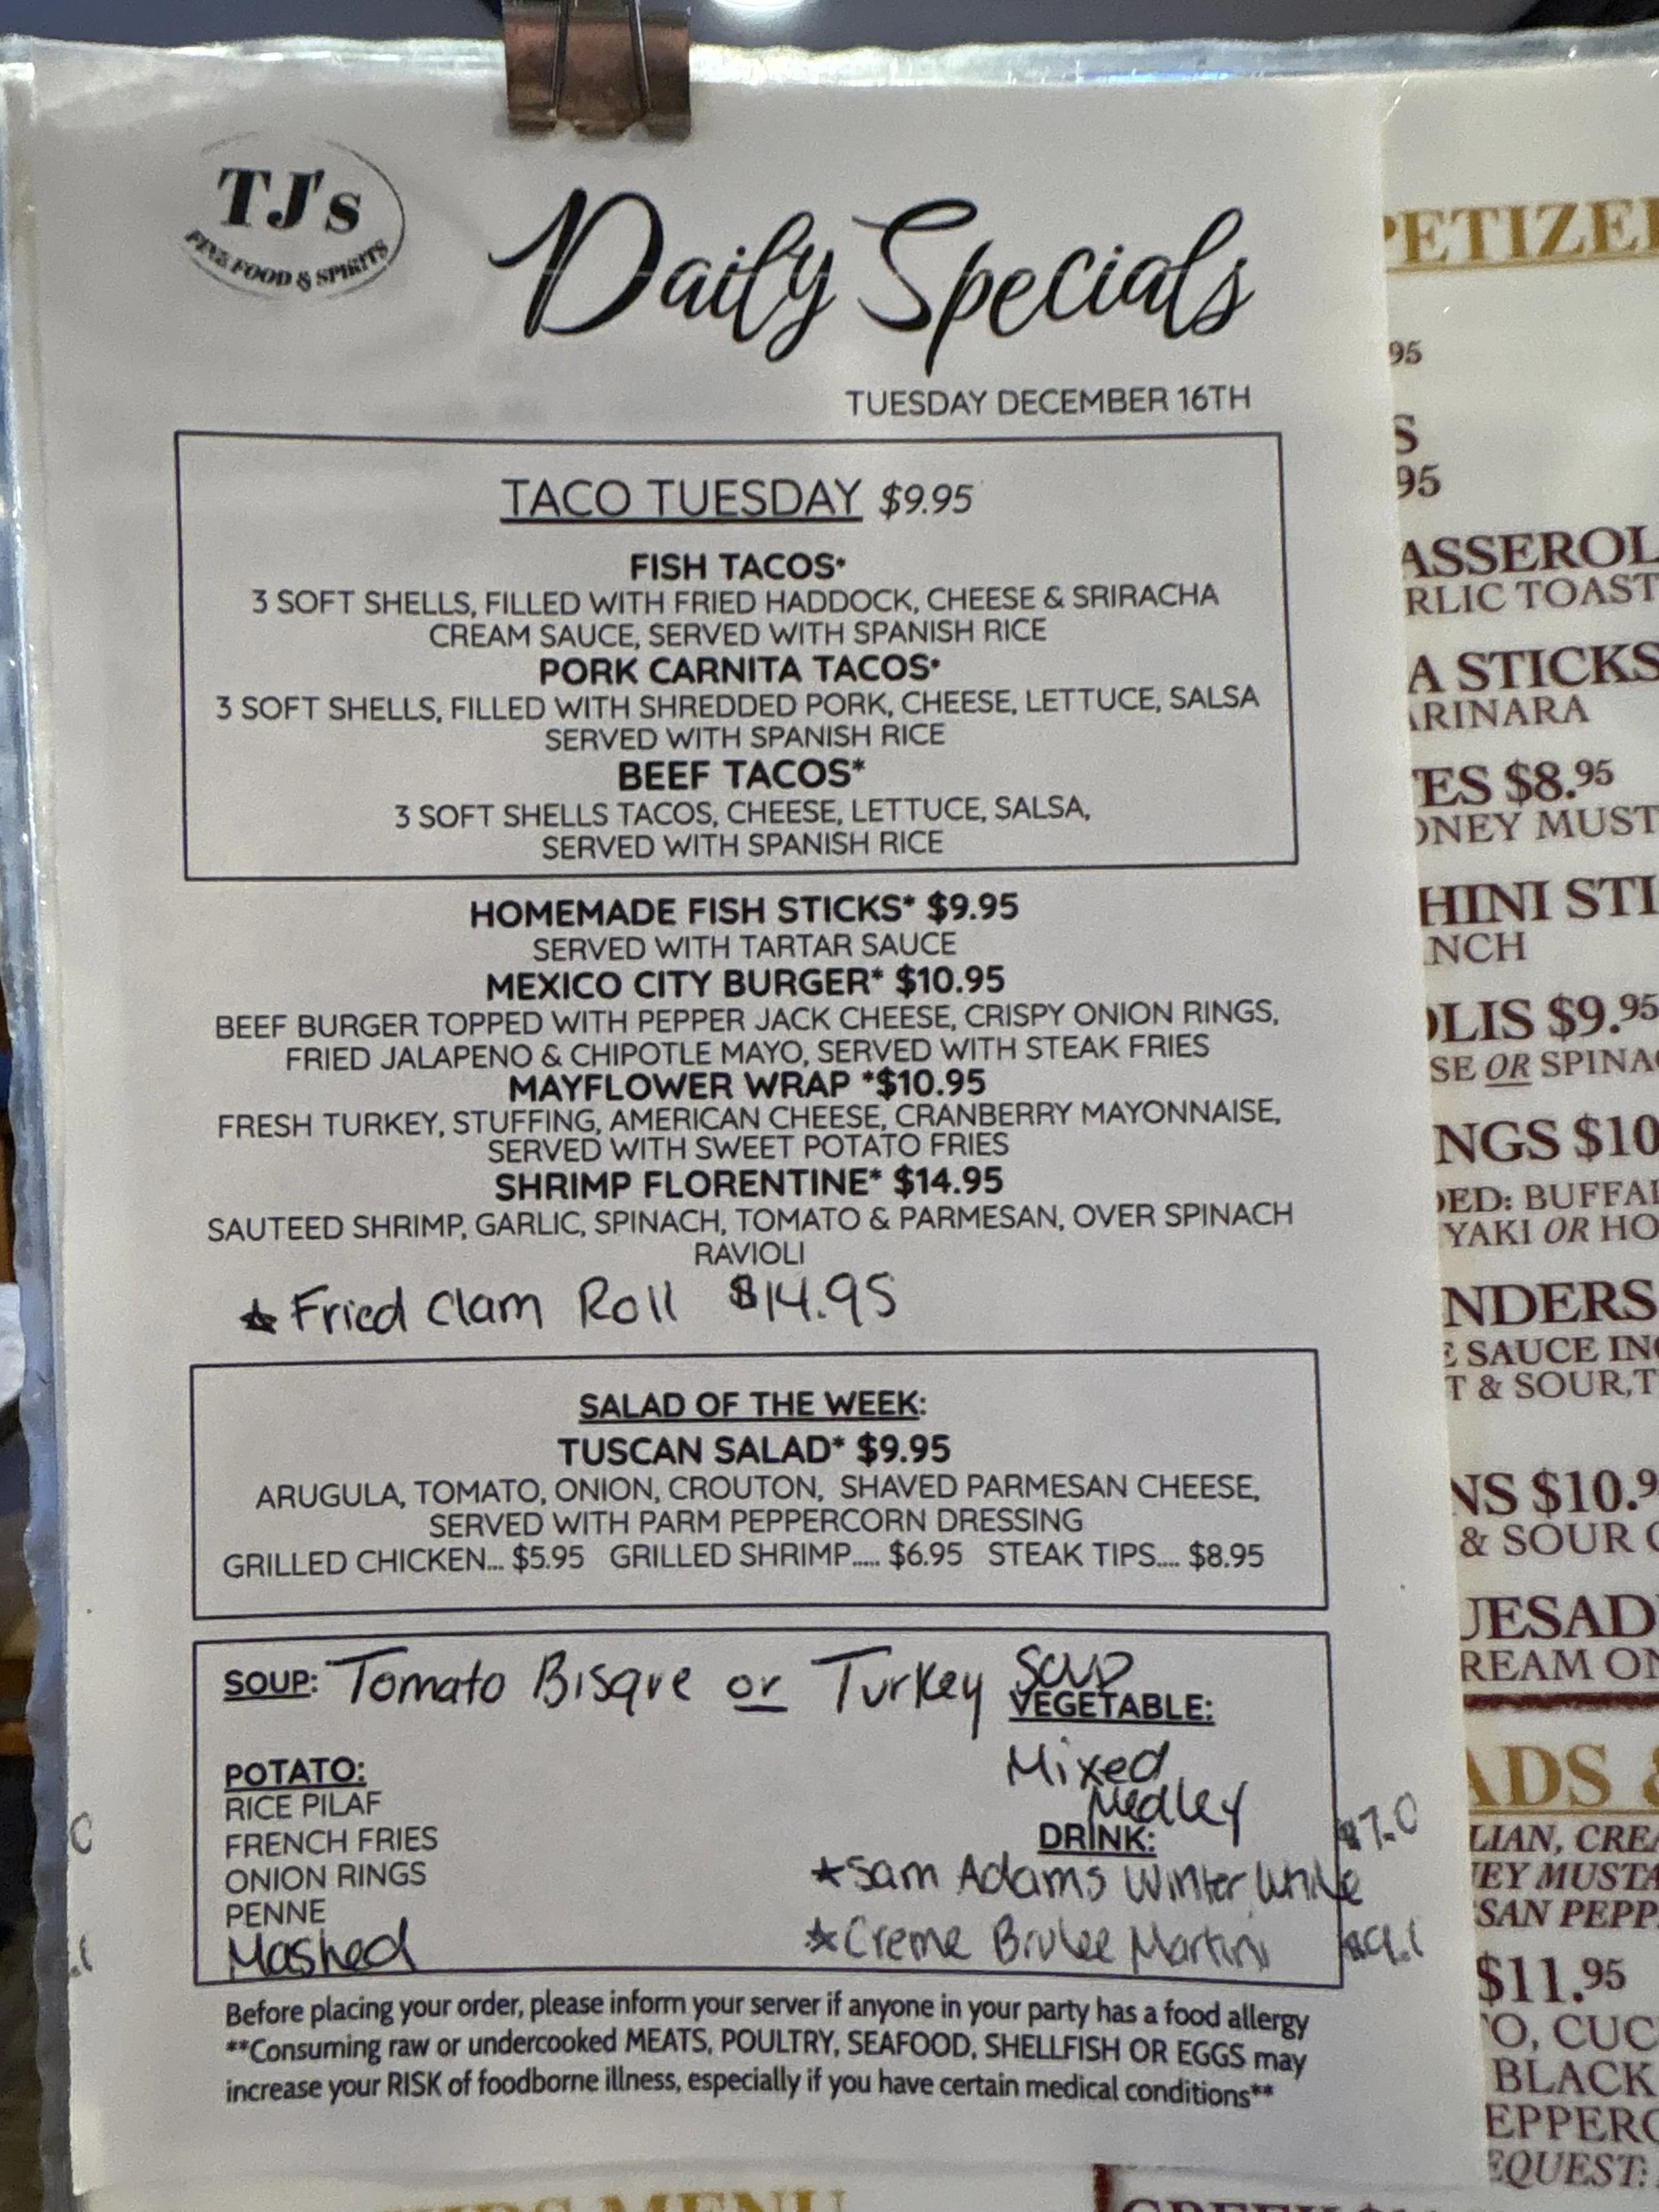 TJ's
FINE FOOD & SPIRITS
Daily Specials
TUESDAY DECEMBER 16TH
TACO TUESDAY $9.95
FISH TACOS*
3 SOFT SHELLS, FILLED WITH FRIED HADDOCK, CHEESE & SRIRACHA
CREAM SAUCE, SERVED WITH SPANISH RICE
PORK CARNITA TACOS*
3 SOFT SHELLS, FILLED WITH SHREDDED PORK, CHEESE, LETTUCE, SALSA
SERVED WITH SPANISH RICE
BEEF TACOS*
3 SOFT SHELLS TACOS, CHEESE, LETTUCE, SALSA,
SERVED WITH SPANISH RICE
HOMEMADE FISH STICKS* $9.95
SERVED WITH TARTAR SAUCE
MEXICO CITY BURGER* $10.95
BEEF BURGER TOPPED WITH PEPPER JACK CHEESE, CRISPY ONION RINGS,
FRIED JALAPENO & CHIPOTLE MAYO, SERVED WITH STEAK FRIES
MAYFLOWER WRAP *$10.95
FRESH TURKEY, STUFFING, AMERICAN CHEESE, CRANBERRY MAYONNAISE,
SERVED WITH SWEET POTATO FRIES
SHRIMP FLORENTINE* $14.95
SAUTEED SHRIMP, GARLIC, SPINACH, TOMATO & PARMESAN, OVER SPINACH
RAVIOLI
★ Fried Clam Roll $14.95
SALAD OF THE WEEK:
TUSCAN SALAD* $9.95
ARUGULA, TOMATO, ONION, CROUTON, SHAVED PARMESAN CHEESE,
SERVED WITH PARM PEPPERCORN DRESSING
GRILLED CHICKEN... $5.95 GRILLED SHRIMP..... $6.95 STEAK TIPS.... $8.95
SOUP: Tomato Bisque or Turkey Soup
POTATO:
RICE PILAF
FRENCH FRIES
ONION RINGS
PENNE
Mashed
VEGETABLE:
Mixed
Medley
DRINK:
★Sam Adams Winter White
$7.0
★Creme Brulee Martini
Before placing your order, please inform your server if anyone in your party has a food allergy
**Consuming raw or undercooked MEATS, POULTRY, SEAFOOD, SHELLFISH OR EGGS may
increase your RISK of foodborne illness, especially if you have certain medical conditions**
PETIZE
95
S
95
ASSEROL
RLIC TOAST
A STICKS
ARINARA
ES $8.95
ONEY MUST
HINI STI
NCH
OLIS $9.95
SE OR SPINA
NGS $10
DED: BUFFA
YAKI OR HO
NDERS
E SAUCE IN
T & SOUR,T
NS $10.9
& SOUR
UESAD
REAM ON
ADS &
LIAN, CREA
EY MUSTA
SAN PEPP
$11.95
O, CUC
BLACK
EPPER
EQUEST:
MENU